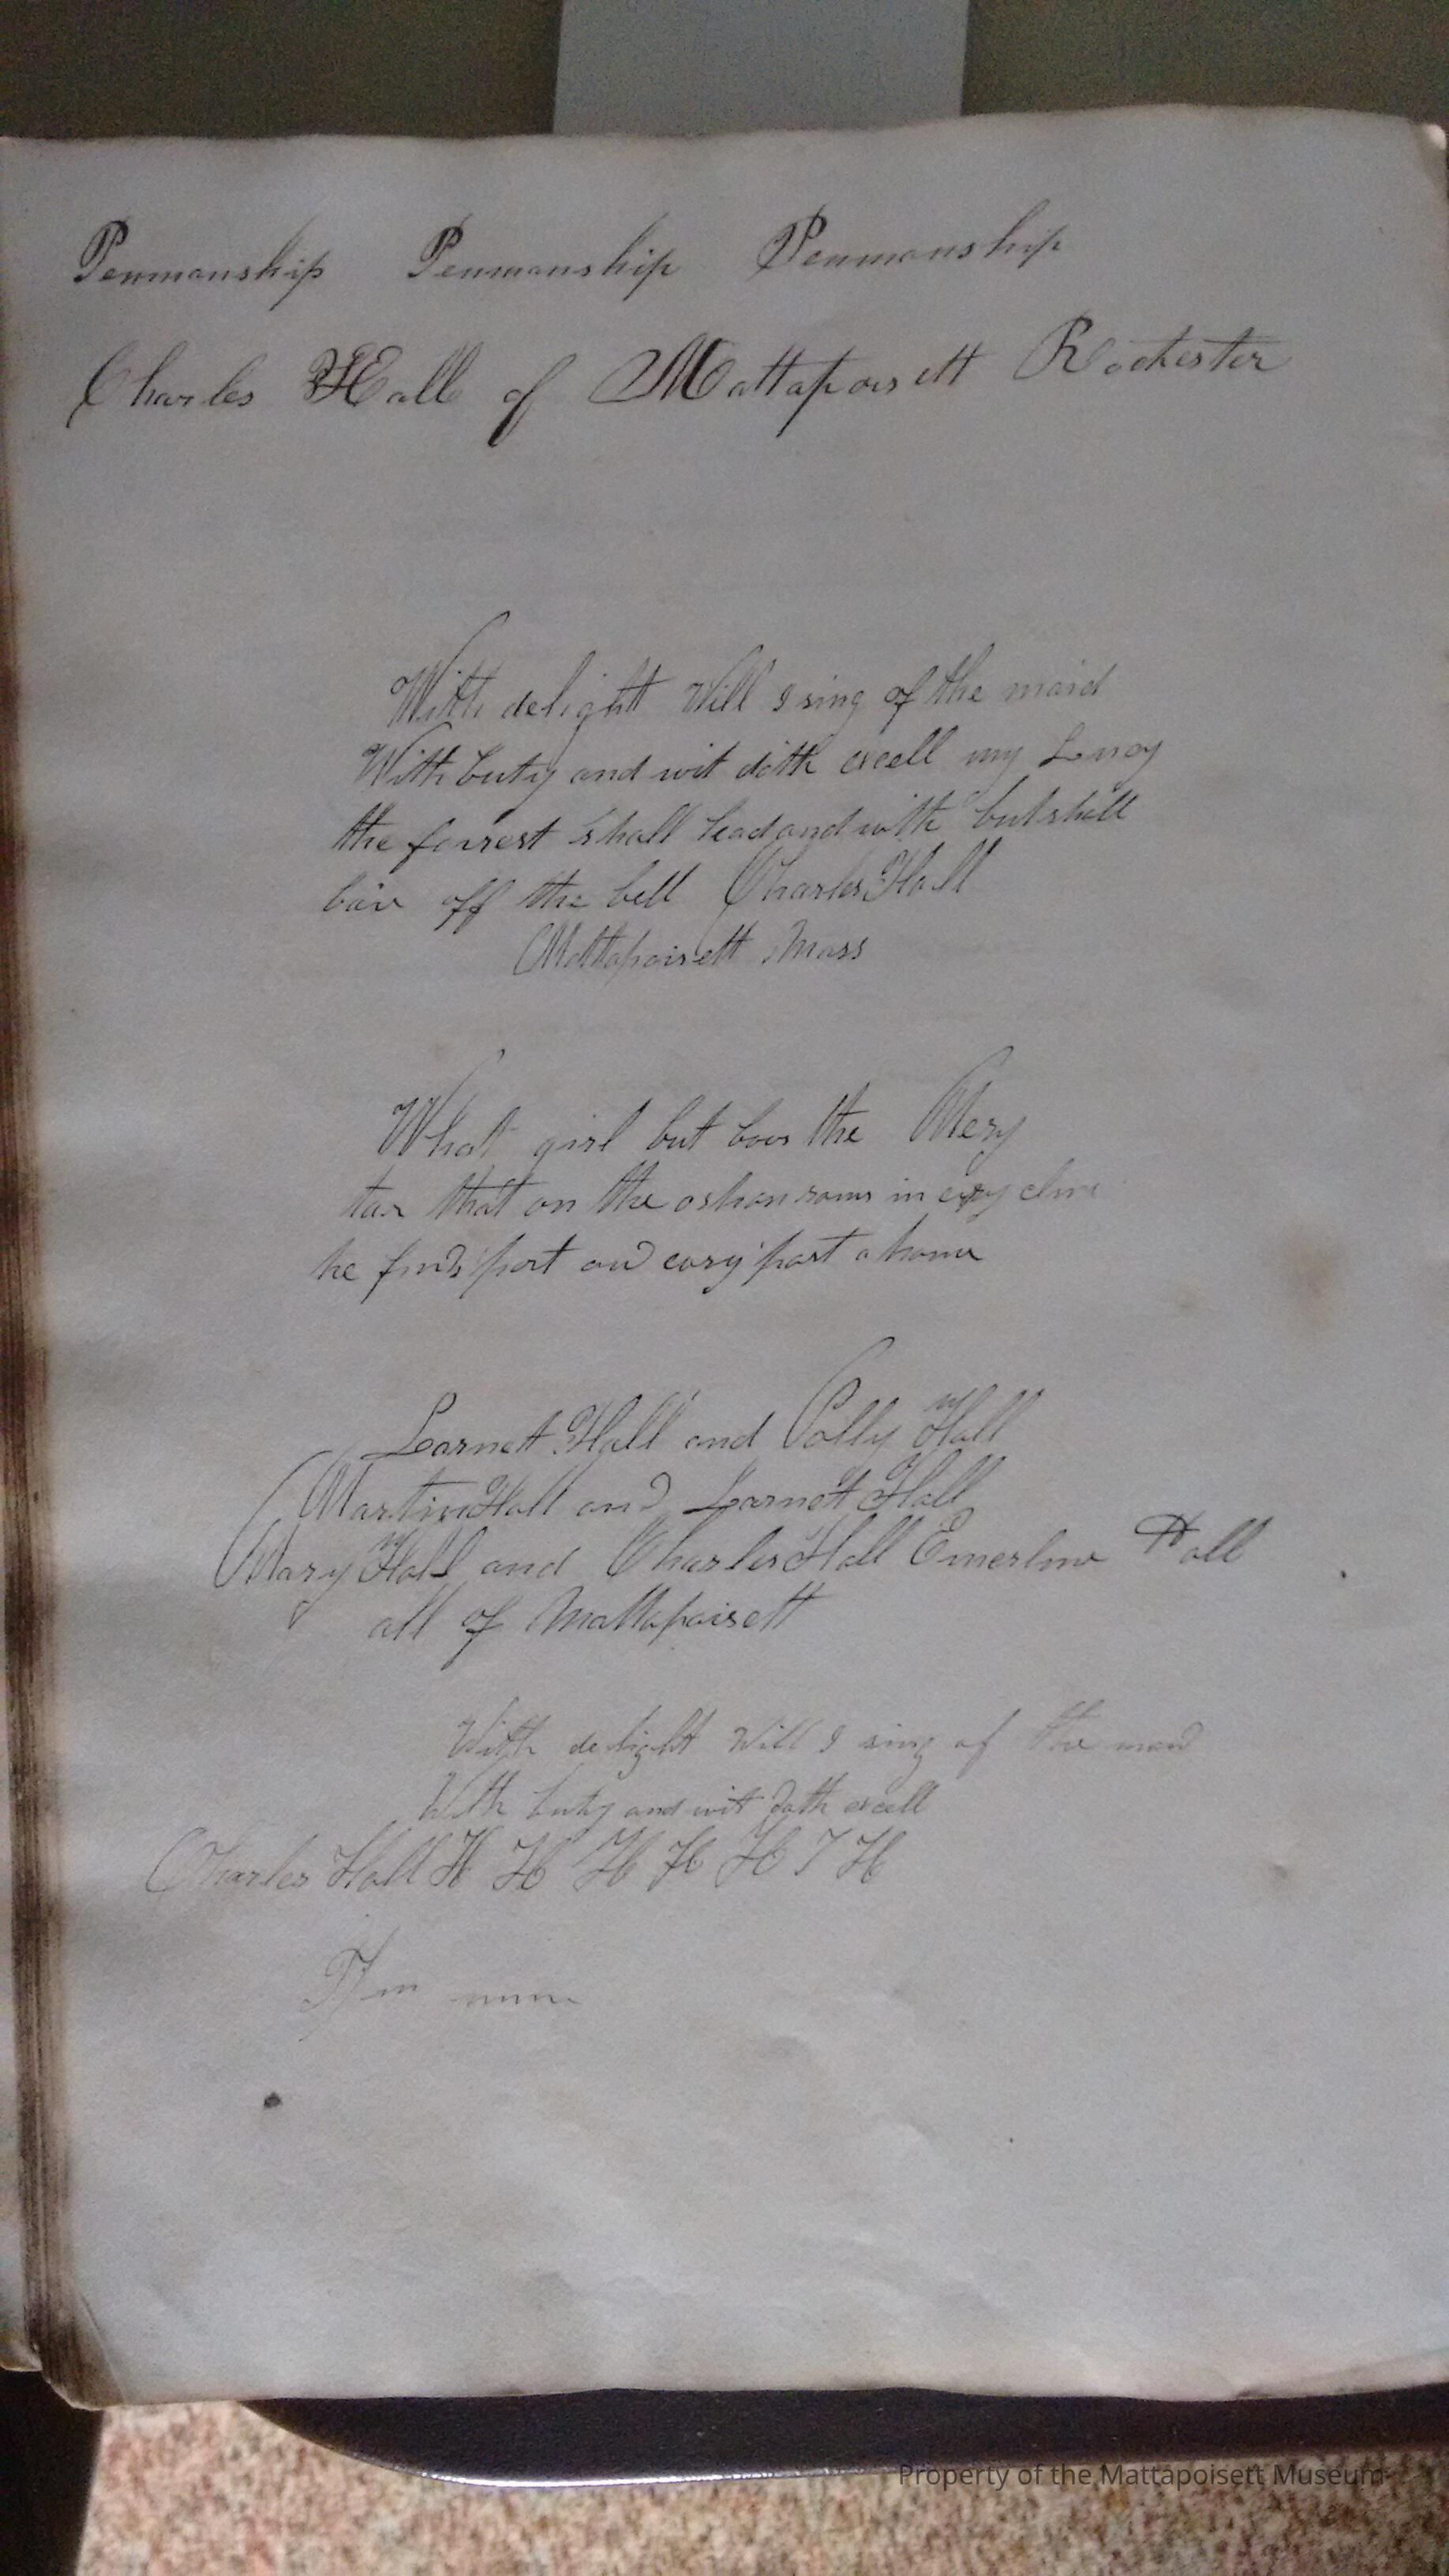 Penmanship Penmanship Penmanship
Charles Hall of Mattapoisett Rochester
With delight Will I sing of the maid
With buty and wit doth excell my Lucy
the fairest shall lead and with but shall
bair off the bell Charles Hall
Mattapoisett Mass
What girl but loves the Mery
tar that on the oshan roams in
he finds port and port a home
Larnett Hall and Polly Hall
Martin Hall and Larnett Hall
Mary Hall and Charles Hall Emerline Hall
all of Mattapoisett
With delight Will I sing of the
With buty and wit doth excell
Charles Hall H H H H H I H
Property of the Mattapoisett Museum